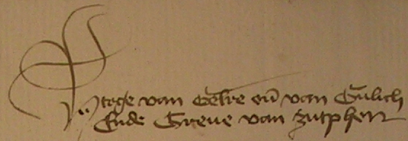 Hertoge van Gelre eñ van Gulich
Ende Greue van zutphen